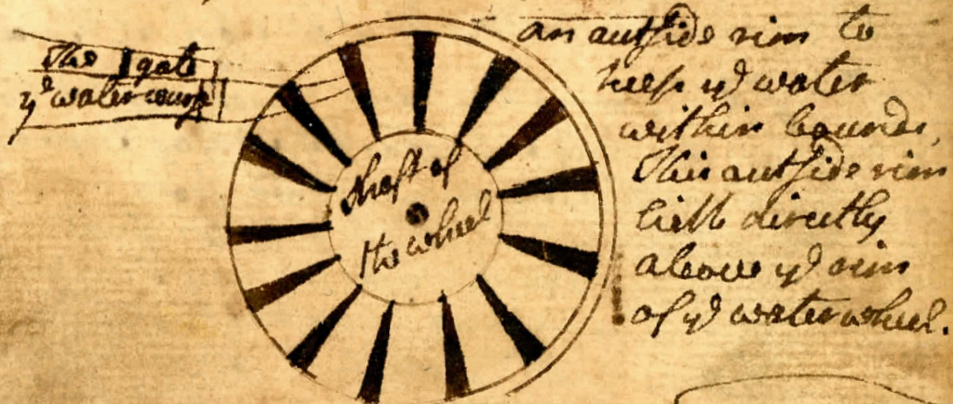 The gate
yᵉ water
shaft of
the wheel
an outside rim to
keep yᵉ water
within bounds,
This outside rim
lieth directly
above yᵉ rim
of yᵉ water wheel.